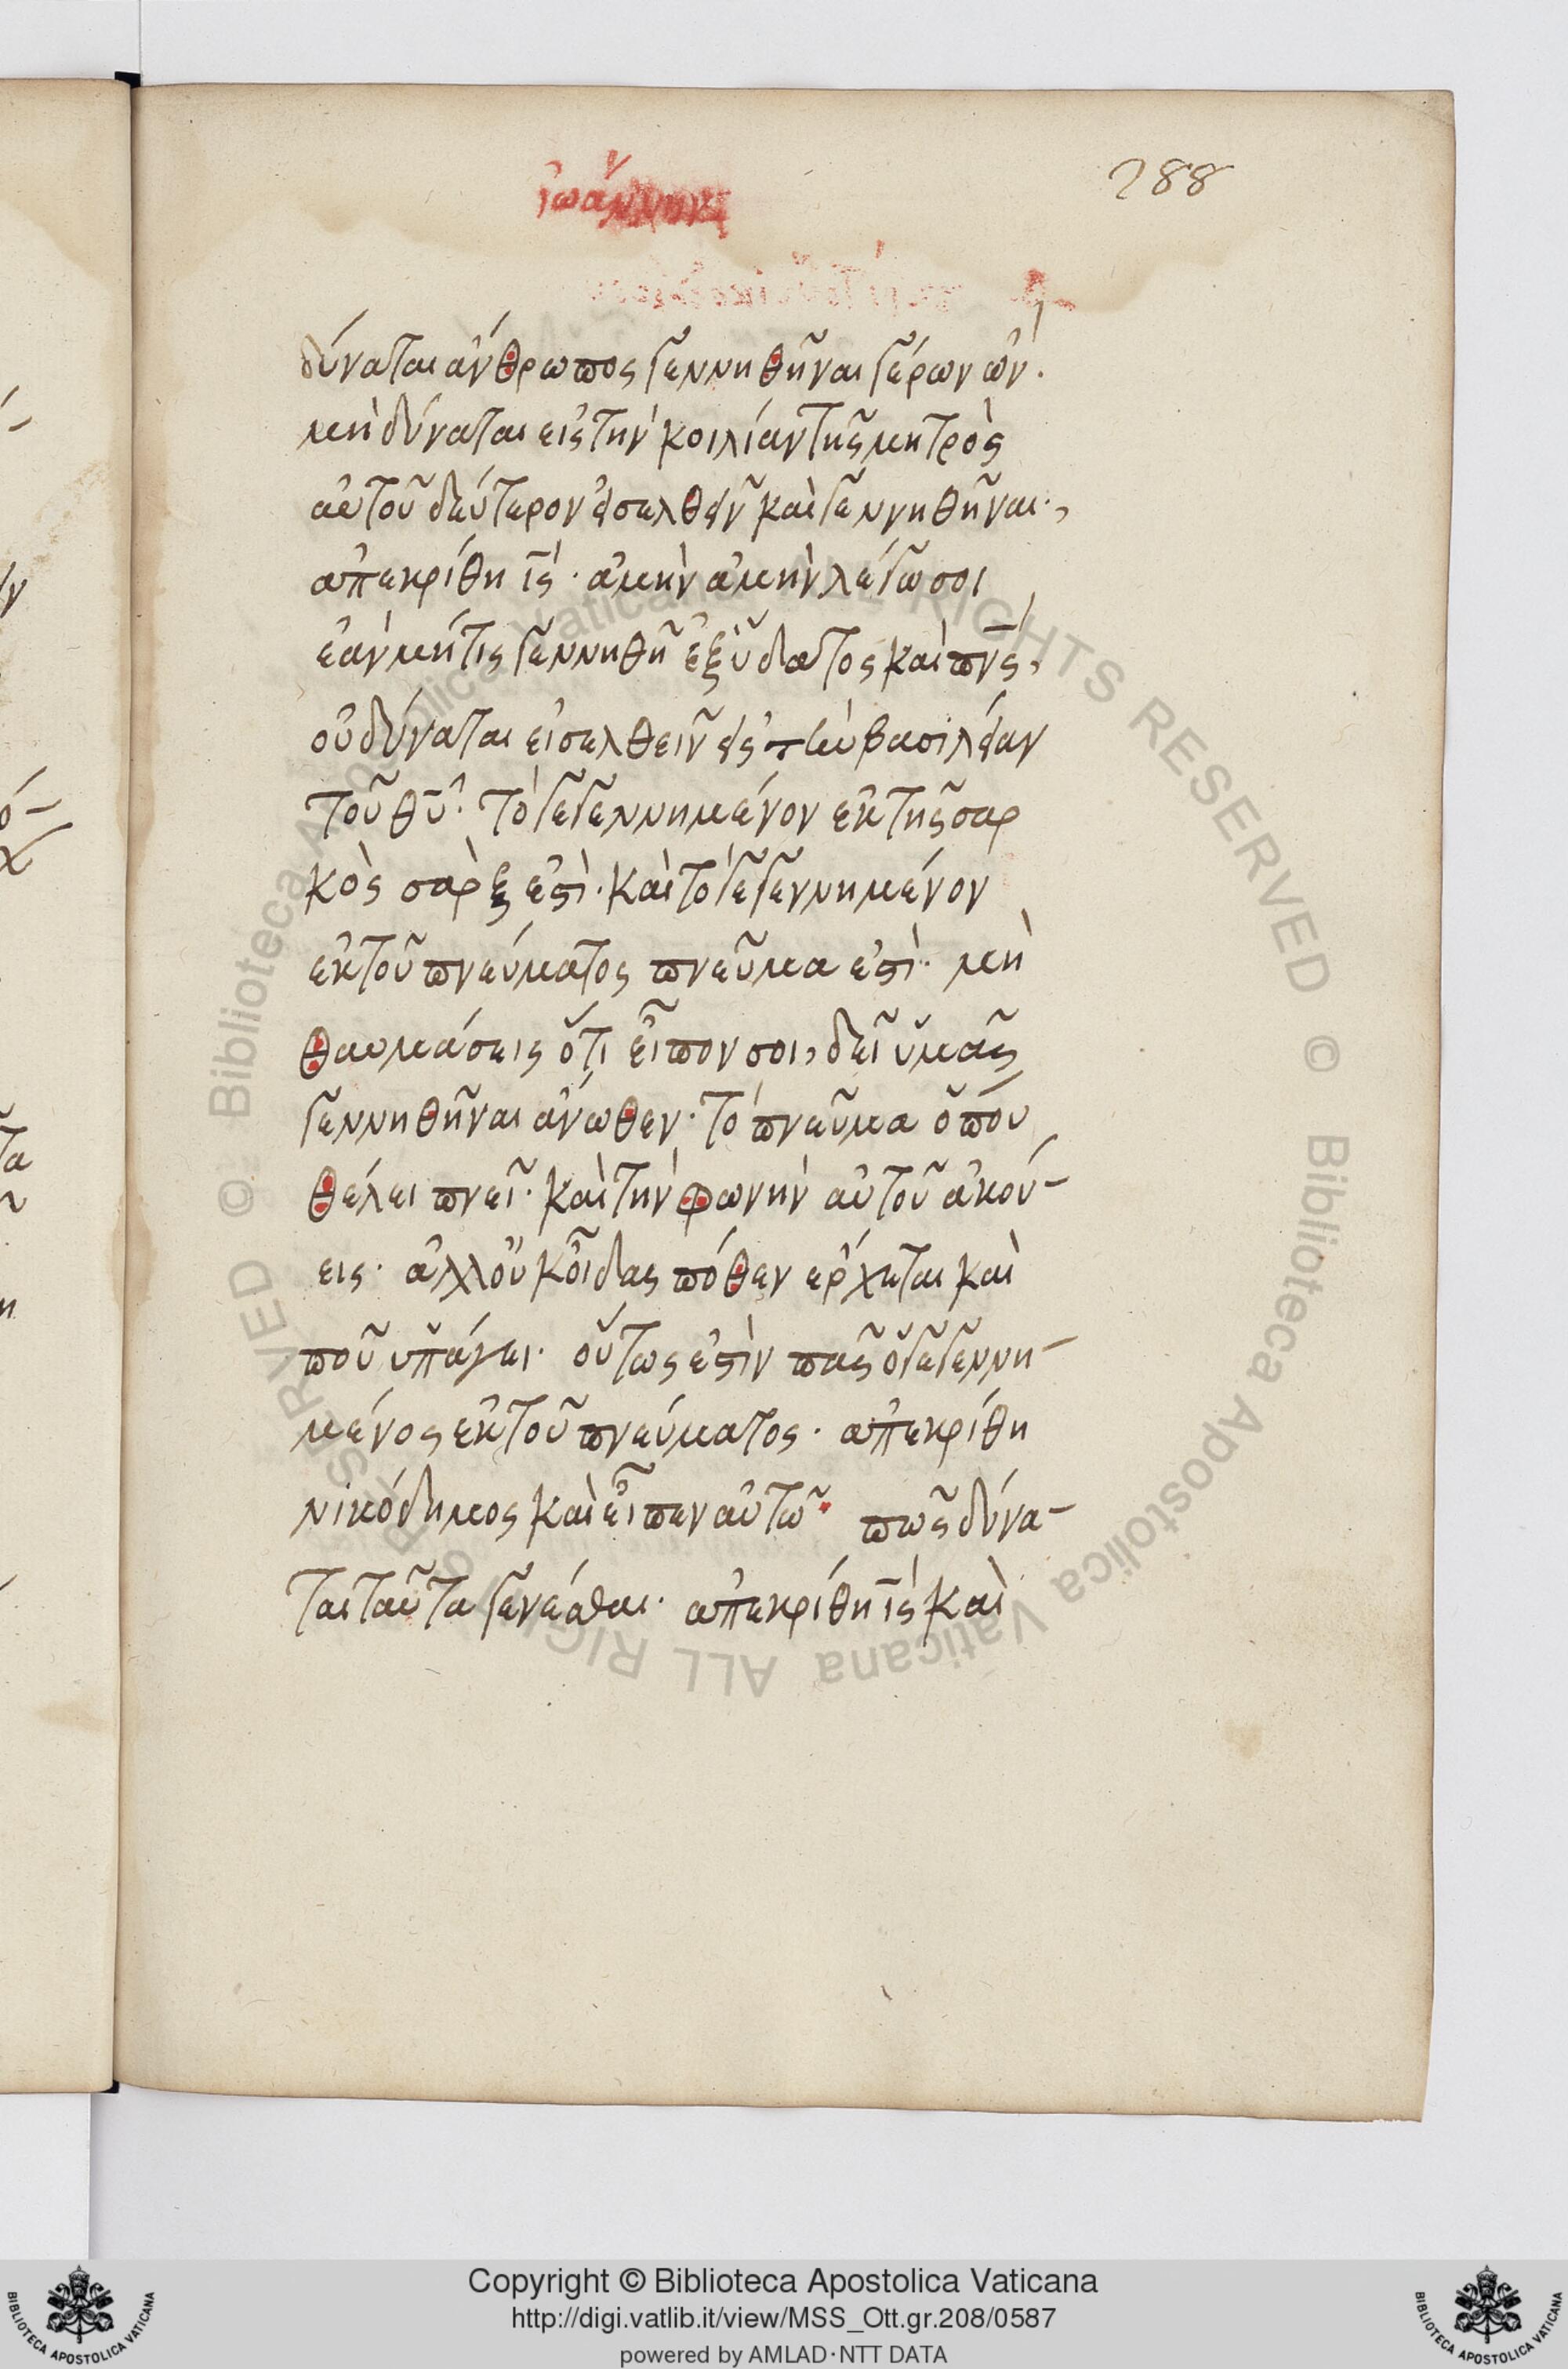 288
δύναται ἄνθρωπος γεννηθῆναι γέρων ὤν.
μὴ δύναται εἰς τὴν κοιλίαν τῆς μητρὸς
αὐτοῦ δεύτερον εἰσελθεῖν καὶ γεννηθῆναι·,
ἀπεκρίθη ις· ἀμὴν ἀμὴν λέγω σοι
ἐὰν μή τις γεννηθῆ ἐξ ὕδατος καὶ πνς,
οὐ δύναται εἰσελθεῖν εἰς τὴν βασιλείαν
τοῦ θυ· τὸ γεγεννημένον ἐκ τῆς σαρ
κὸς σάρξ ἐστι· καὶ τὸ γεγεννημένον
ἐκ τοῦ πνεύματος πνεῦμα ἐστι· μὴ
θαυμάσεις ὅτι εἶπον σοι, δεῖ ὑμᾶς
γεννηθῆναι ἄνωθεν· τὸ πνεῦμα ὅπου
θέλει πνεῖ· καὶ τὴν φωνὴν αὐτοῦ ἀκού-
εις· ἀλλ οὐκ οἶδας πόθεν ἔρχεται καὶ
ποῦ ὑπάγει· οὕτως ἐστὶν πᾶς ὁ γεγεννη-
μένος ἐκ τοῦ πνεύματος· ἀπεκρίθη
νικόδημος καὶ εἶπεν αὐτῶ· πῶς δύνα-
ται ταῦτα γενέσθαι· ἀπεκρίθη ις καὶ
Copyright © Biblioteca Apostolica Vaticana
http://digi.vatlib.it/view/MSS_Ott.gr.208/0587
powered by AMLAD·NTT DATA